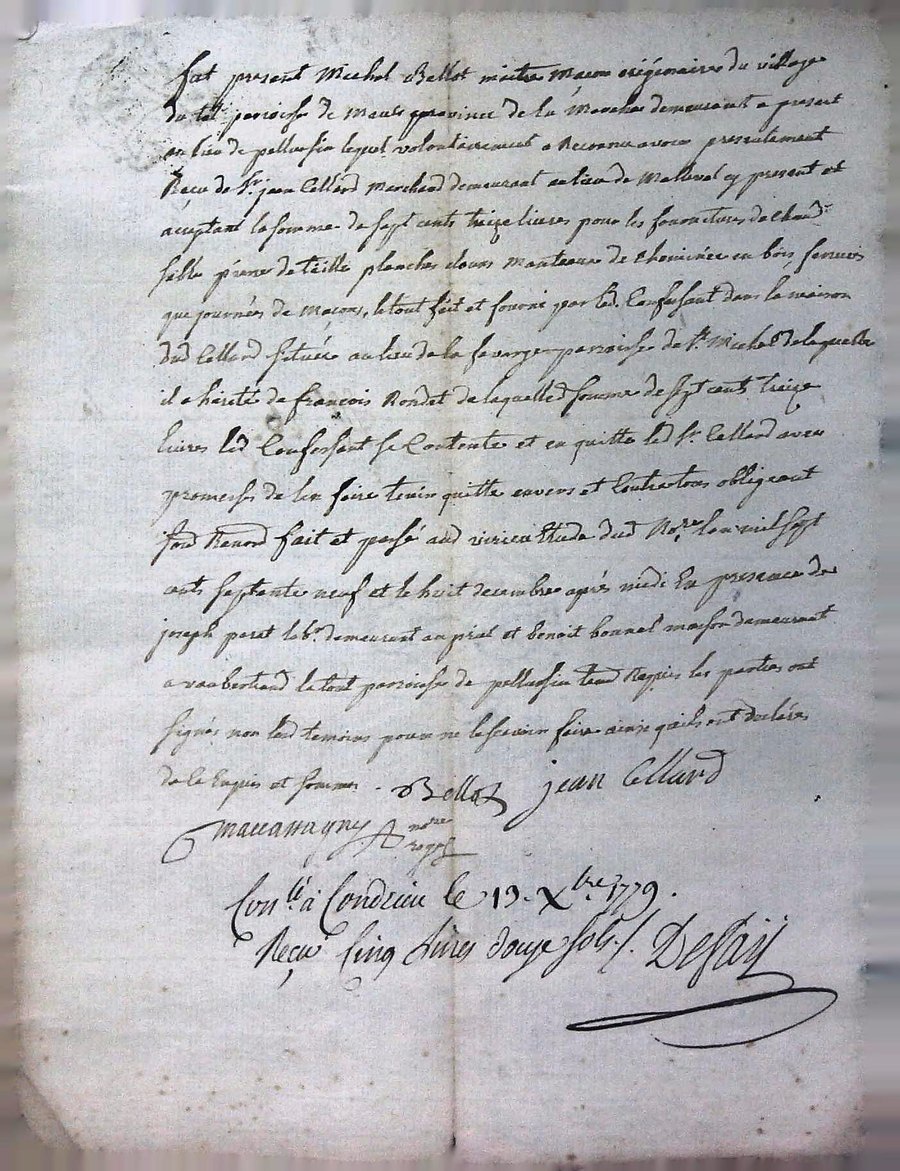 fut present Michel Bellot maitre Macon origionaire du village
du teil parroisse de Mauts province de la Marche demeurant a present
au lieu de pellussin lequel volontairement a Reconnu avoir presentement
Recu de Sr. jean Cellard Marchand demeurant au lieu de Malleval cy present et
acceptant la somme de sept cents treize livres pour les fournitures de chaud
sable pierre de taille planches clours manteaux de cheminée en bois,
que journées de maçons, le tout fait et fourni par led. Confessant dans la maison
dud Cellard située au lieu de la faverge parroisse de St. Michel de laquelle
il a hérité de françois Rondet de laquelled somme de sept cent treize
livres led Confessant se Contente et en quitte led Sr. Cellard avec
promesse de len faire tenir quitte envers et Contre tous obligeant
fait et passé aud virieu Etude dud Nore. lan mil sept
cents septante neuf et le huit decembre après midi En presence de
joseph paret demeurant au préal et benoit bonnel maison demeurant
a vaubertrand le tout parroisse de pellussin les parties ont
signés non led temoins pour ne le scavoir faire ainsi quils ont déclarés
de ce Enquis et sommes. Bellot jean Cellard
Maccarragny nore
royal
Conlé. à Condrieu le 19. Xbre 1779.
Reçu Cinq Livres douze sols. Desaij